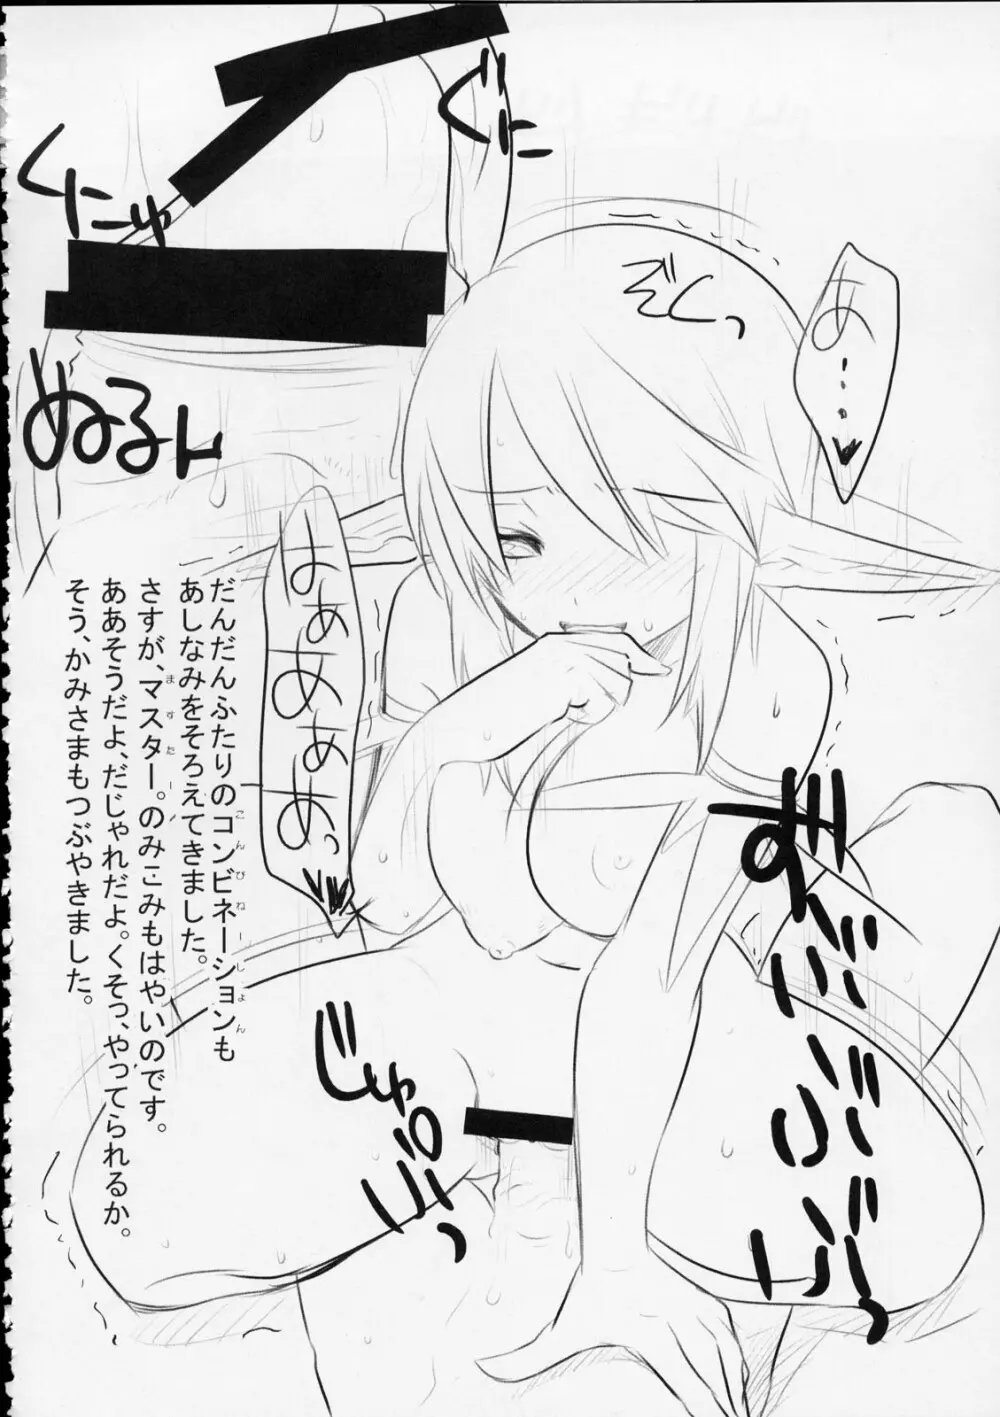 ぐに
ぐにゅ
ぞくっ
ぬるん
だんだんふたりのコンビネーションも
あしなみをそろえてきました。
さすが、マスター。のみこみもはやいのです。
ああそうだよ、だじゃれだよ。くそっ、やってられるか。
そう、かみさまもつぶやきました。